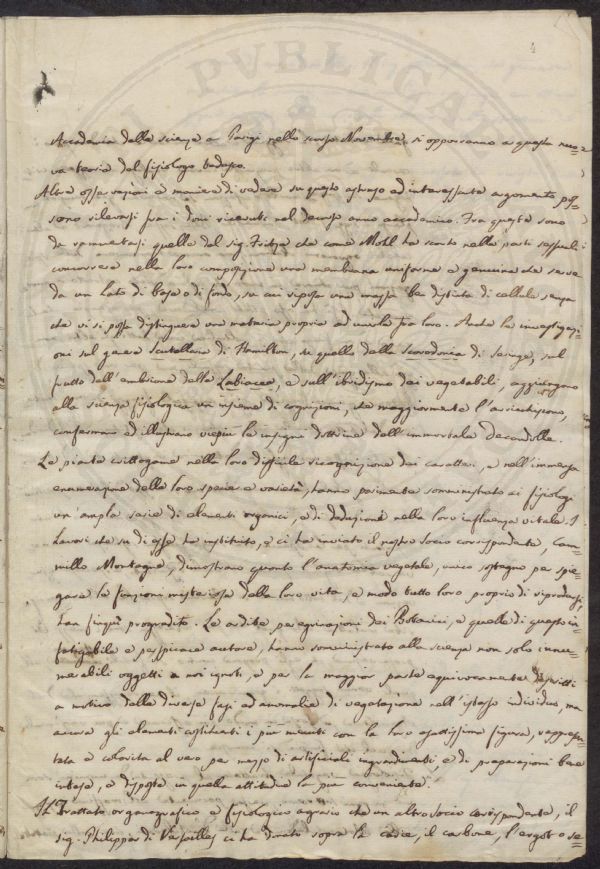 4
Accademia delle scienze a Parigi nello scorso Novembre, si opporranno a questa nuo=
va teoria del fisiologo tedesco.
Altre osservazioni e maniere di vedere su questo astruso ed interessante argomento pos=
sono rilevarsi fra i doni ricevuti nel decorso anno accademico. Fra queste sono
da rammentarsi quelle del sig. Fritze che come Mohl ha scorto nelle parti sessuali
concorrere nella loro composizione una membrana uniforme e genuina che serve
da un lato di base o di fondo, su cui riposa una massa ben distinta di cellule senza
che vi si possa distinguere una materia propria ad unirle fra loro. Anche le investigazi=
oni sul genere Scutellaria di Hamilton, e quelle della Scorodonia di Seringe, sul
frutto dell'embrione delle Labiacee, e sull'ibridismo dei vegetabili, aggiungono
alla scienza fisiologica un insieme di cognizioni, che maggiormente l'arricchiscono,
confermano ed illustrano viepiù le insigne dottrine dell'immortale Decandolle.
Le piante crittogame nella loro difficile ricognizione dei caratteri, e nell'immensa
enumerazione delle loro specie e varietà, hanno parimente somministrato ai fisiologi
un'ampla serie di elementi organici, e di deduzioni nella loro influenza vitale. I
lavori che su di esse ha instituito, e ci ha inviato il nostro socio corrispondente, Cam=
millo Montagne, dimostrano quanto l'anatomia vegetale, unico sostegno per spie=
gare le funzioni misteriose della loro vita, e modo tutto loro proprio di riprodursi,
han finqui progredito. Le ardite peregrinazioni dei Botanici, e quelle di questo in=
fatigabile e perspicace autore, hanno somministrato alla scienza non solo innu=
merabili oggetti a noi ignoti, e per la maggior parte equivocamente descritti
a motivo delle diverse fasi ed anomalie di vegetazione nell'istesso individuo, ma
ancora gli elementi costituenti i più minuti con la loro esattissima figura, rappresen=
tata e colorita al vero per mezzo di artificiali ingrandimenti, e di preparazioni bene
intese, e disposte in quella attitudine la più conveniente.
Il Trattato organografico e fisiologico agrario che un altro socio corrispondente, il
sig. Philippar di Versailles ci ha donato sopra la carie, il carbone, l'ergot o se=